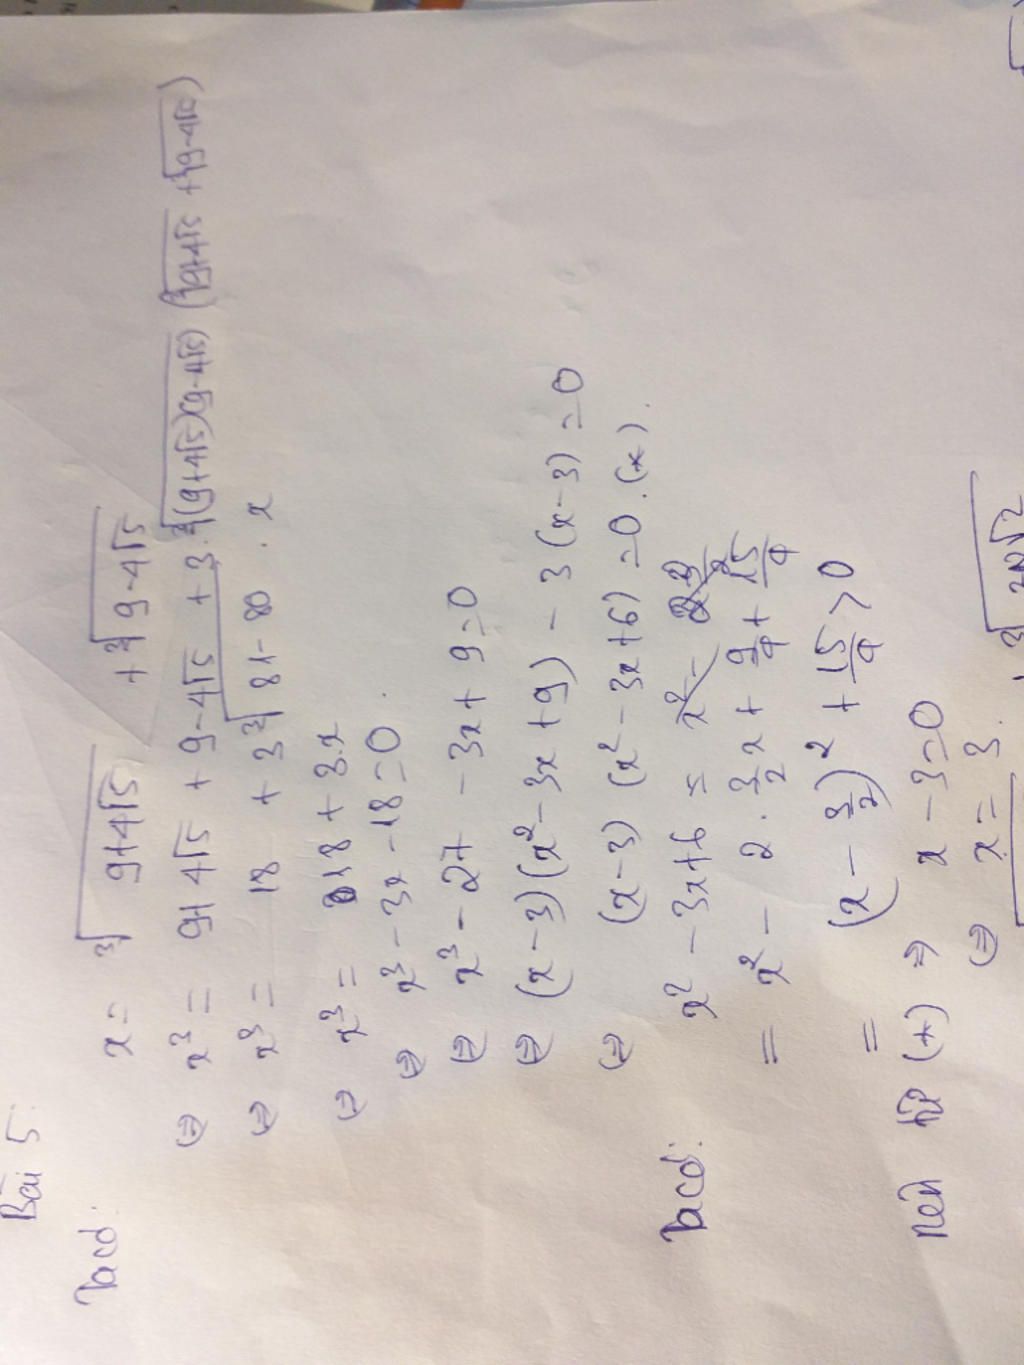 Bài 5:
Ta có: x = ∛(9+4√5) + ∛(9-4√5)
(=) x³ = 9+4√5 + 9-4√5 + 3.∛((9+4√5)(9-4√5)) (∛(9+4√5) + ∛(9-4√5))
(=) x³ = 18 + 3∛(81-80) . x
(=) x³ = 18 + 3.x
(=) x³ - 3x - 18 = 0.
(=) x³ - 27 - 3x + 9 = 0
(=) (x-3)(x²-3x+9) - 3(x-3) = 0
(=) (x-3) (x²-3x+6) = 0. (*).
Ta có: x² - 3x+6 =
= x² - 2. 3/2 x + 9/4 + 15/4
= (x - 3/2)² + 15/4 > 0
nên từ (*) => x - 3 = 0
(=) x = 3.